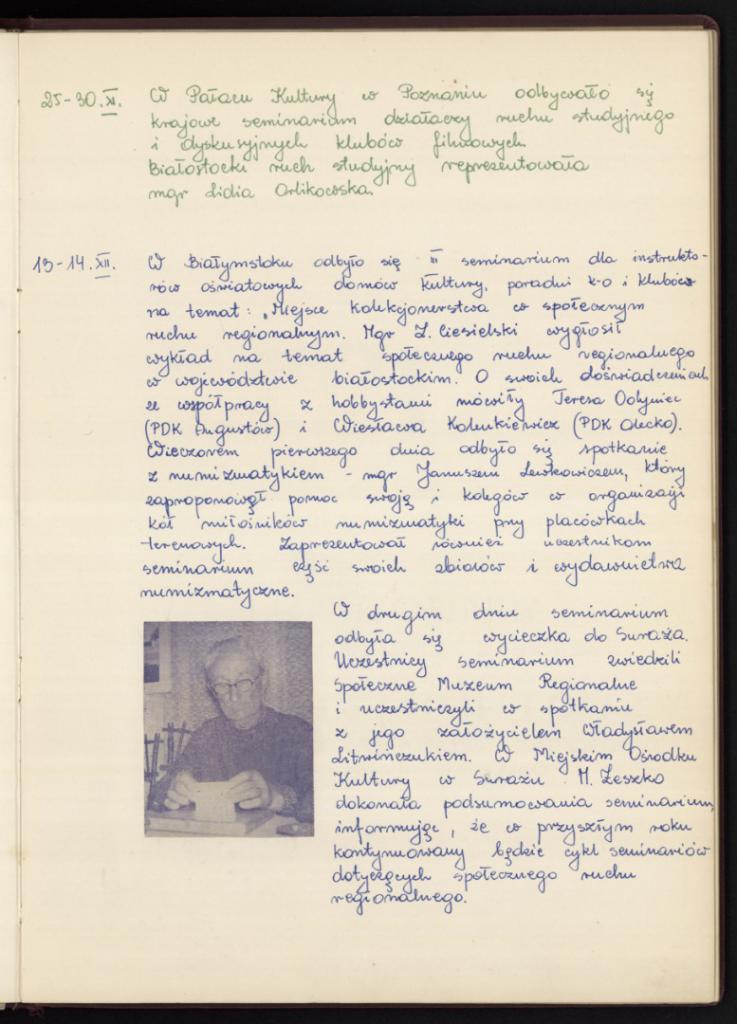 25-30.XI. W Pałacu Kultury w Poznaniu odbywało się
krajowe seminarium działaczy ruchu studyjnego
i dyskusyjnych klubów filmowych.
Białostocki ruch studyjny reprezentowała
mgr Lidia Orlikowska.
13-14.XII. W Białymstoku odbyło się III seminarium dla instrukto-
rów oświatowych domów kultury, poradni k-o i klubów
na temat: "Miejsce kolekcjonerstwa w społecznym
ruchu regionalnym. Mgr Z. Ciesielski wygłosił
wykład na temat społecznego ruchu regionalnego
w województwie białostockim. O swoich doświadczeniach
ze współpracy z hobbystami mówiły Teresa
(PDK Augustów) i Wiesława Kalenkiewicz (PDK Olecko).
Wieczorem pierwszego dnia odbyło się spotkanie
z numizmatykiem - mgr Januszem Lewkowiczem, który
zaproponował pomoc swoją i kolegów w organizacji
kół miłośników numizmatyki przy placówkach
terenowych. Zaprezentował również uczestnikom
seminarium część swoich zbiorów i wydawnictwa
numizmatyczne.
W drugim dniu seminarium
odbyła się wycieczka do Suraża.
Uczestnicy seminarium zwiedzili
Społeczne Muzeum Regionalne
i uczestniczyli w spotkaniu
z jego założycielem Władysławem
Litwińczukiem. W Miejskim Ośrodku
Kultury w Surażu M. Zeszko
dokonała podsumowania seminarium,
informując, że w przyszłym roku
kontynuowany będzie cykl seminariów
dotyczących społecznego ruchu
regionalnego.